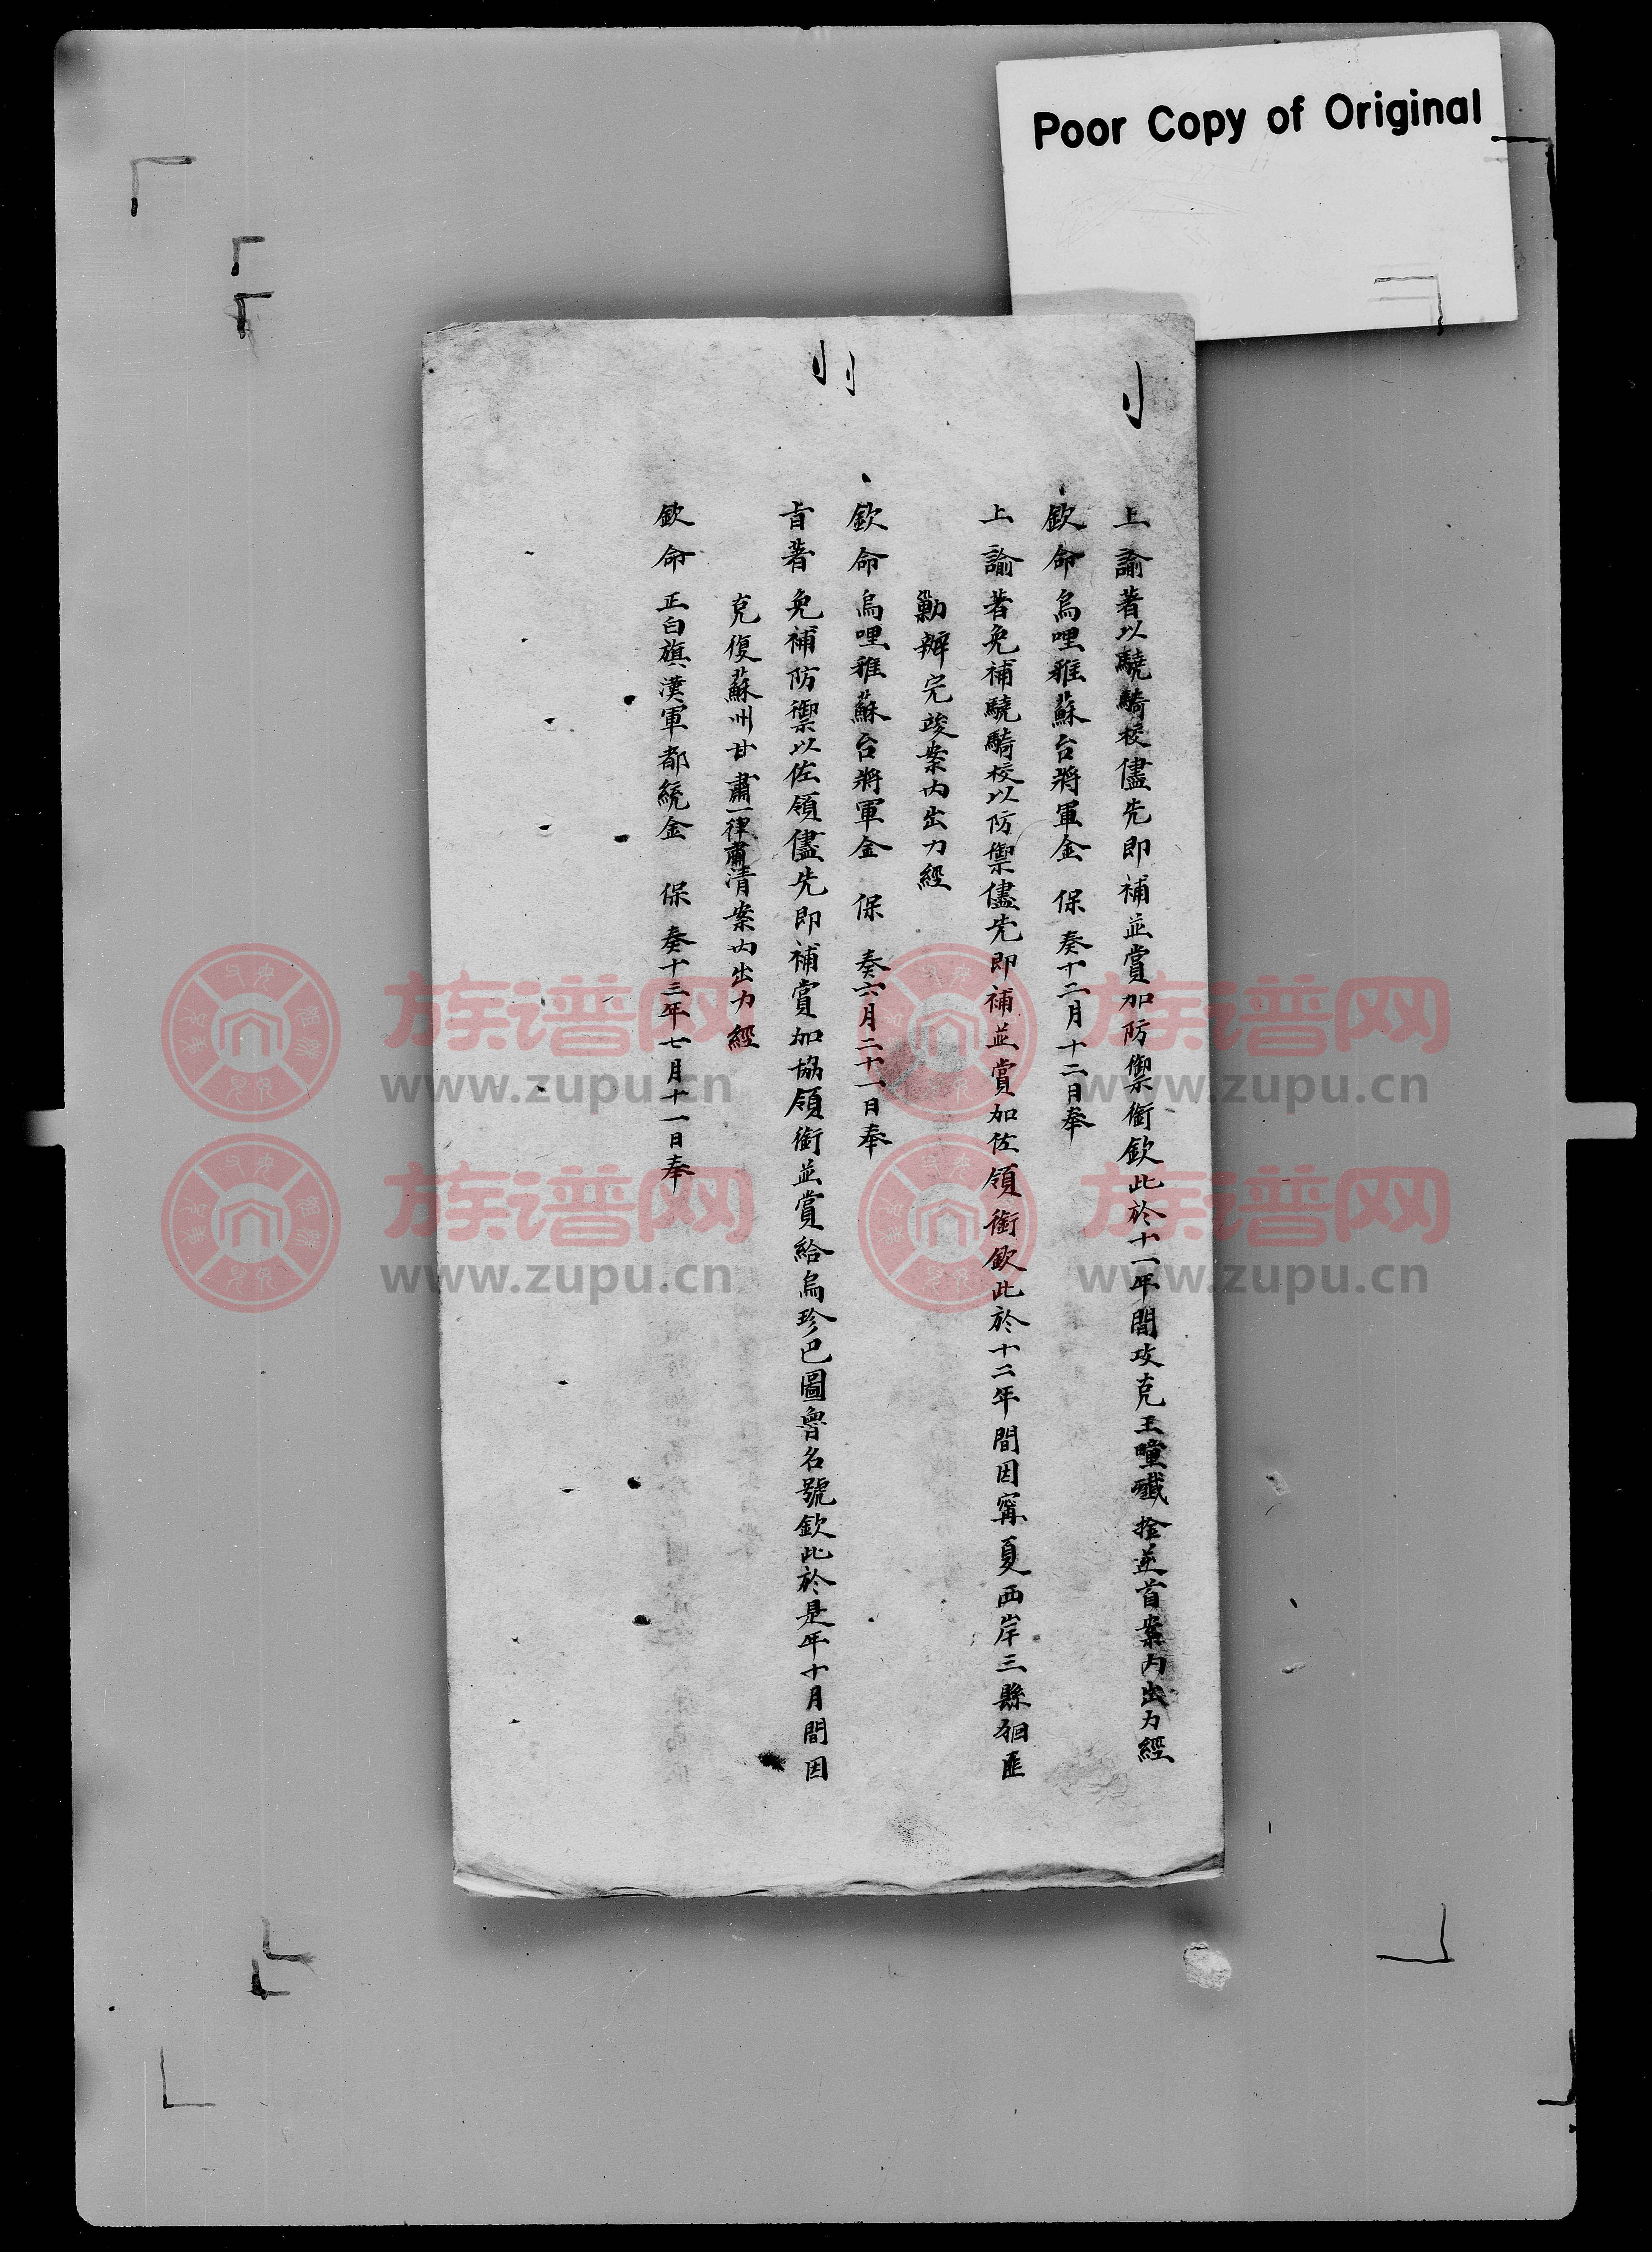 Poor Copy of Original
上諭著以驍騎校儘先即補並賞加防禦銜欽此於十一年間攻克王疃殲擒逆首案內出力經
欽命烏哩雅蘇台將軍金 保奏十二月十二日奉
上諭著免補驍騎校以防禦儘先即補並賞加佐領銜欽此於十二年間因甯夏西岸三縣徊匪
勦辦完竣案內出力經
欽命烏哩雅蘇台將軍金 保 奏六月二十一日奉
旨著免補防禦以佐領儘先即補賞加協領銜並賞給烏珍巴圖魯名號欽此於是年十月間因
克復蘇州甘肅一律肅清案內出力經
欽命正白旗漢軍都統金 保 奏十三年七月十一日奉
族谱网
www.zupu.cn
族谱网
www.zupu.cn
族谱网
www.zupu.cn
族谱网
www.zupu.cn